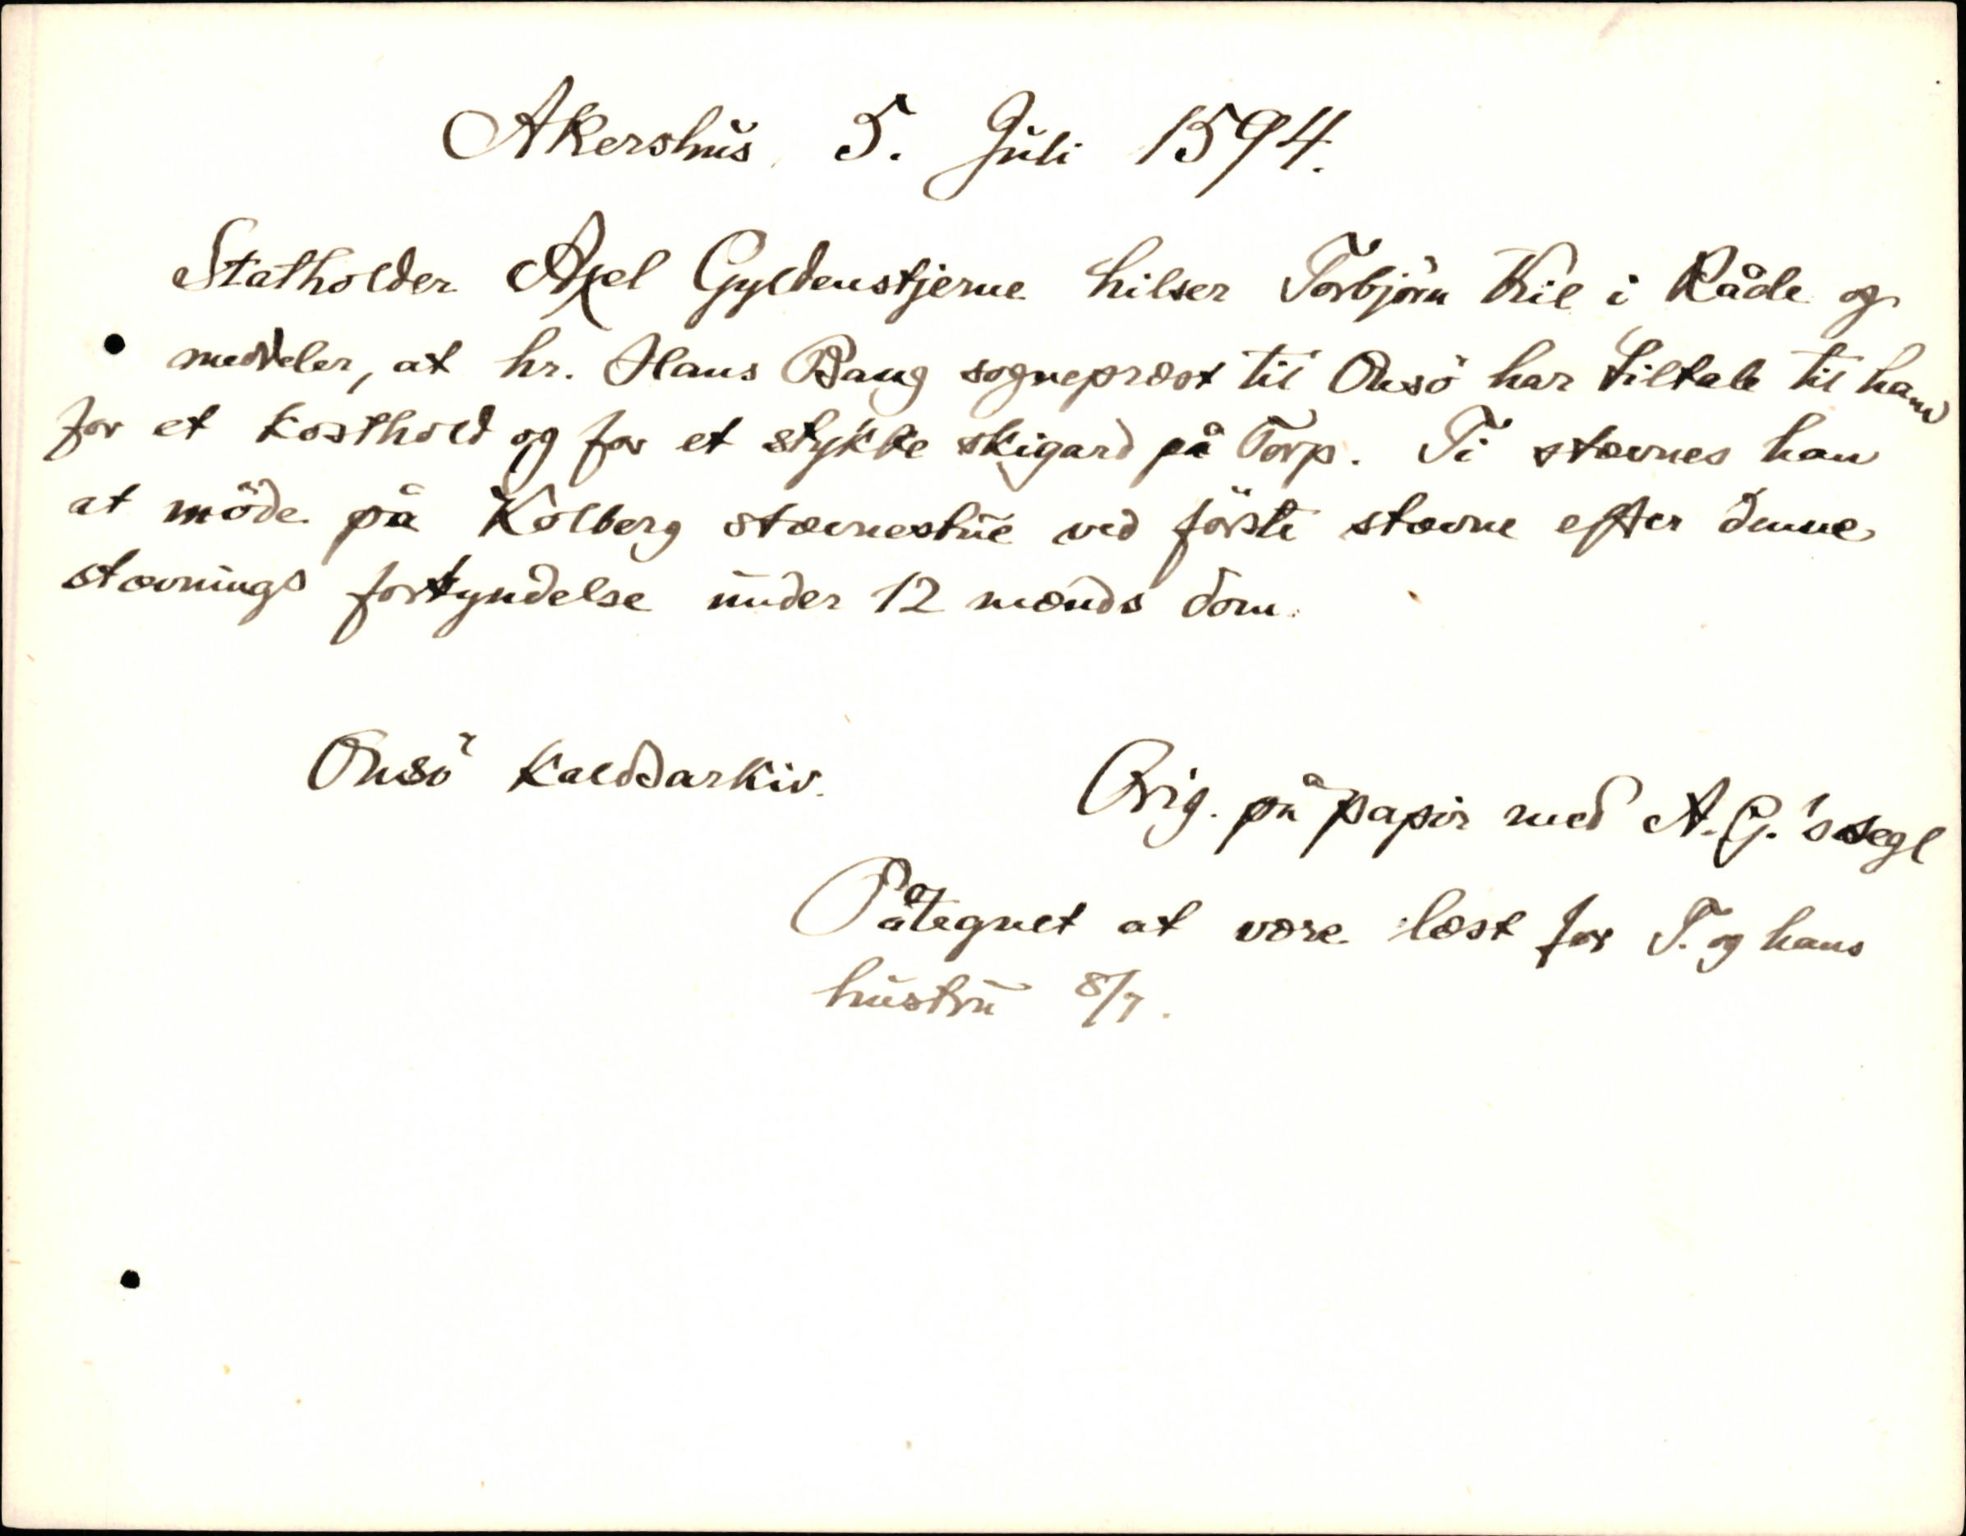 Akershus 5. Juli 1594.
Statholder Axel Gyldenstjerne hilser Torbjörn Kil i Råde og
meddeler, at hr. Hans Bang sognepræst til Onsö har tiltale til ham
for et kosthold og for et stykke skigard på Torp. Ti stævnes han
at möde på Kolberg stævnestue ved förste stævne efter denne
stævnings forkyndelse under 12 mænds dom.
Onsö kaldsarkiv.
Orig. på papir med A. G.'s segl
Påtegnet at være læst for T. og hans
hustru 8/7.